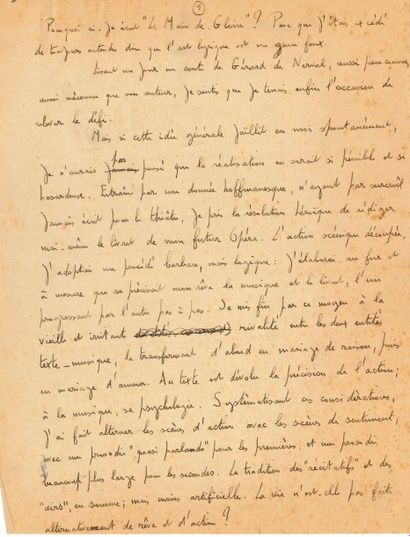 1
Pourquoi ai-je écrit "La Main de Gloire"? Parce que j'étais excédé
de toujours entendre dire que l'art lyrique est un genre faux.
Lisant un jour un conte de Gérard de Nerval, aussi peu connu,
aussi méconnu que son auteur, je sentis que je tenais enfin l'occasion de
relever le défi.
Mais si cette idée générale jaillit en moi spontanément,
je n'aurais pas pensé que la réalisation en serait si pénible et si
hasardeuse. Entraîné par une donnée hoffmanesque, n'ayant par surcroît
jamais écrit pour le théâtre, je pris la résolution héroïque de rédiger
moi-même le livret de mon futur Opéra. L'action scénique découpée,
j'adoptai un procédé barbare, mais logique: j'élaborai au fur et
à mesure que se précisait mon rêve la musique et le livret, l'un
progressant par l'autre pas à pas. Je mis fin par ce moyen à la
vieille et irritante rivalité entre les deux entités
texte-musique, la transformant d'abord en mariage de raison, puis
en mariage d'amour. Au texte est dévolu la précision de l'action;
à la musique, sa psychologie. Systématisant ces considérations,
j'ai fait alterner les scènes d'action avec les scènes de sentiment,
avec un prosodie "quasi parlando" pour les premières, et un prosodie
beaucoup plus large pour les secondes. La tradition des "récitatifs" et des
"airs", en somme; mais moins artificielle. La vie n'est-elle pas faite
alternativement de rêve et d'action?